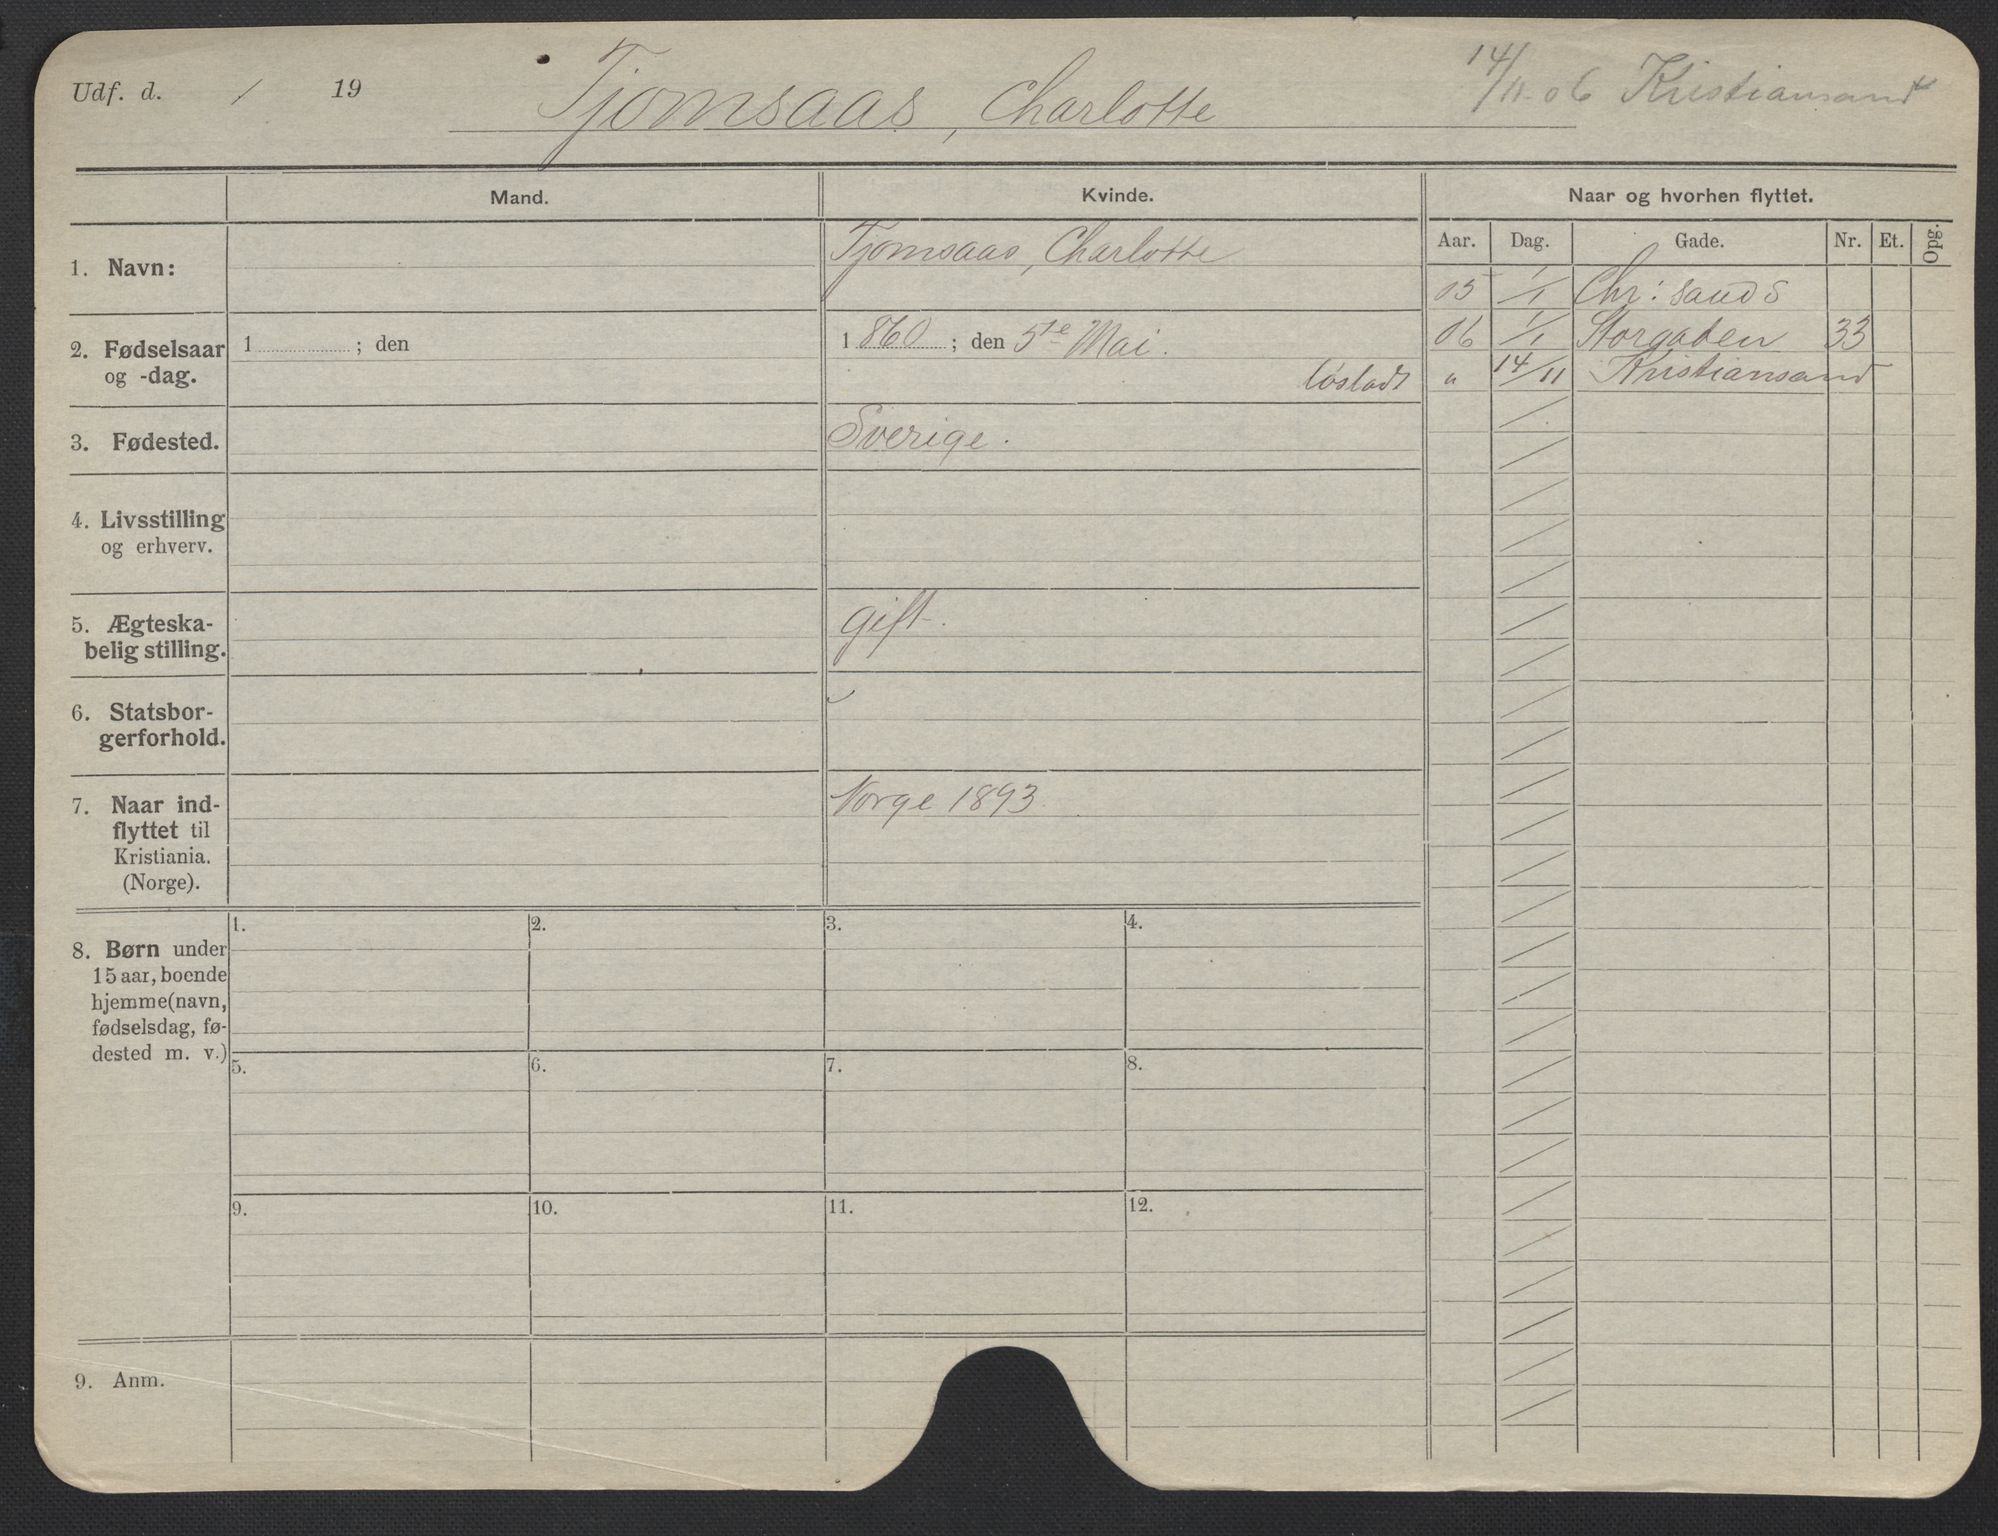 Udf. d. / 19 Tjomsaas, Charlotte 14/11 06 Kristiansand
Mand. Kvinde. Naar og hvorhen flyttet.
Aar. Dag. Gade. Nr. Et. Opg.
1. Navn: Tjomsaas, Charlotte
05 1/1 Chr: sands
2. Fødselsaar og -dag. 1 ; den 1860 ; den 5te Mai.
06 1/1 Storgaden 33
Løsladt
" 14/11 Kristiansand
3. Fødested. Sverige.
4. Livsstilling
og erhverv.
5. Ægteska-
belig stilling. gift.
6. Statsbor-
gerforhold.
7. Naar ind- Norge 1893
flyttet til
Kristiania.
(Norge).
1. 2. 3. 4.
8. Børn under
15 aar, boende
hjemme (navn,
fødselsdag, fø-
dested m. v.)
5. 6. 7. 8.
9. 10. 11. 12.
9. Anm.